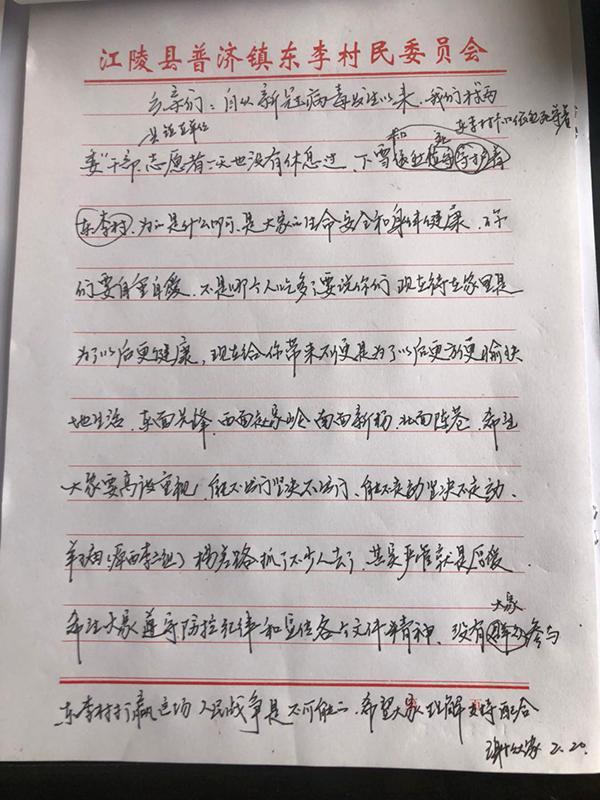 江陵县普济镇东李村民委员会
乡亲们：自从新冠病毒发生以来，我们村两
委干部、志愿者一天也没有休息过，下雪依然守护着
东李村，为的是什么呀，是大家的生命安全和身体健康，你
们要自重自爱，不是哪个人吃多了要说你们，现在待在家里是
为了以后更健康，现在给你带来不便是为了以后更方便更愉快
地生活，东面先锋，西面赵家岭，南面新杨，北面陈巷，希望
大家要高度重视，能不出门坚决不出门，能不走动坚决不走动，
抓了不少人去了，其实严管就是厚爱，
希望大家遵守防控纪律和单位各个文件精神，没有大家参与
东李村打赢这场人民战争是不可能的，希望大家理解支持配合
2.20.